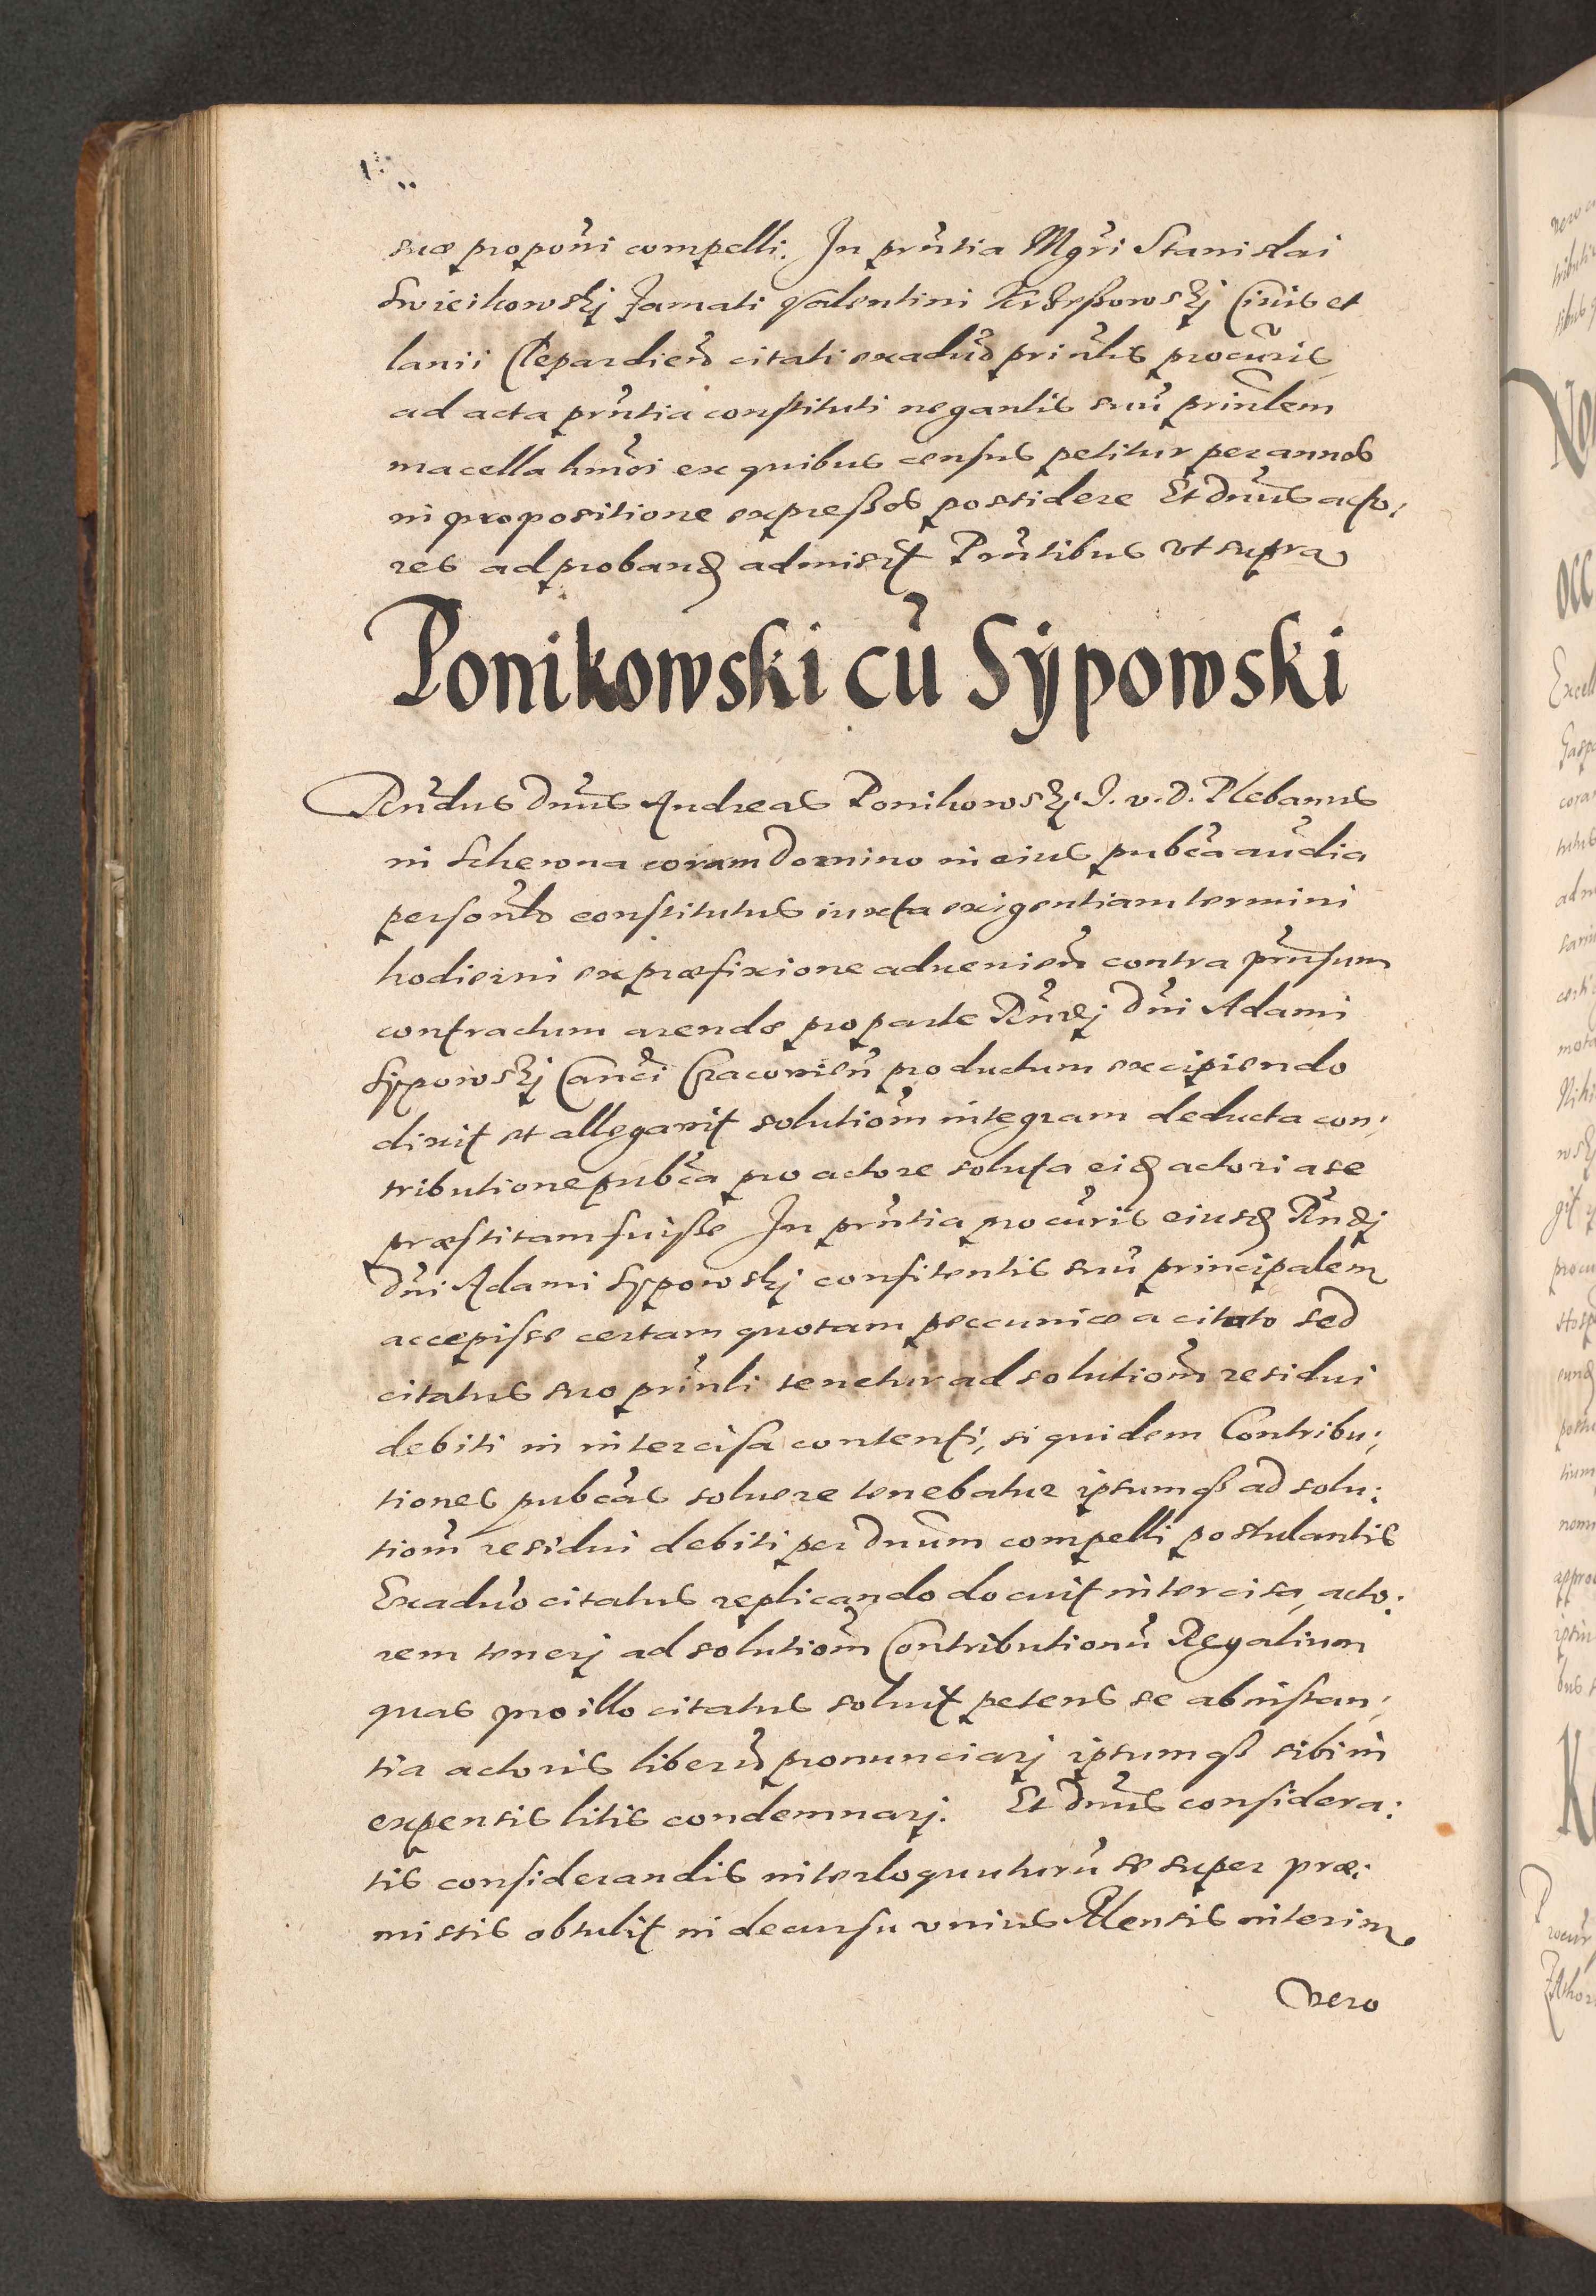 suæ proponi compelli. In prntia Mgri Stanislai
Swieikowskj famati Valentini Krzeszowskj Civis et
lanii Clepardien citati ex aduo prinlis procuris
ad acta prntia constituti negantis suu prinlem
macella hmoi ex quibus census petitur per annos
in propositione expressos possidere Et Dnus acto:
res ad proband admisit Prntibus vt supra
Ponikowski cu Sijpowski
Rndus Dnus Andreas Ponikowskj I. v. D. Plebanus
in Schewna coram Domino in eius pubca audia
personlr constitutus iuxta exigentiam termini
hodierni ex præfixione advenien contra prnsum
contractum arendæ pro parte Rndj Dni Adami
Sypowskj Canci Cracovien productum excipiendo
dixit et allegavit solutiom integram deducta con:
tributione pubca pro actore soluta eid actori a se
præstitam fuisse In prntia procuris eiusd Rndj
Dni Adami Sypowskj confitentis suu principalem
accepisse certam quotam peccuniæ a citato sed
citatus suo prinli tenetur ad solutiom residui
debiti in intercisa contenti, si quidem Contribu:
tiones pubcas soluere tenebatur ipsumq3 ad solu:
tiom residui debiti per Dnum compelli postulantis
Ex aduo citatus replicando docuit intercisa, acto:
rem tenerj ad solutiom Contributionu Regalium
quas pro illo citatus soluit petens se ab instan:
tia actoris liberu pronunciarj ipsumq3 sibi in
expensis litis condemnarj. Et Dnus considera:
tis considerandis interloquuturu se super præ:
missis obtulit in decursu vnius Mensis interim
vero